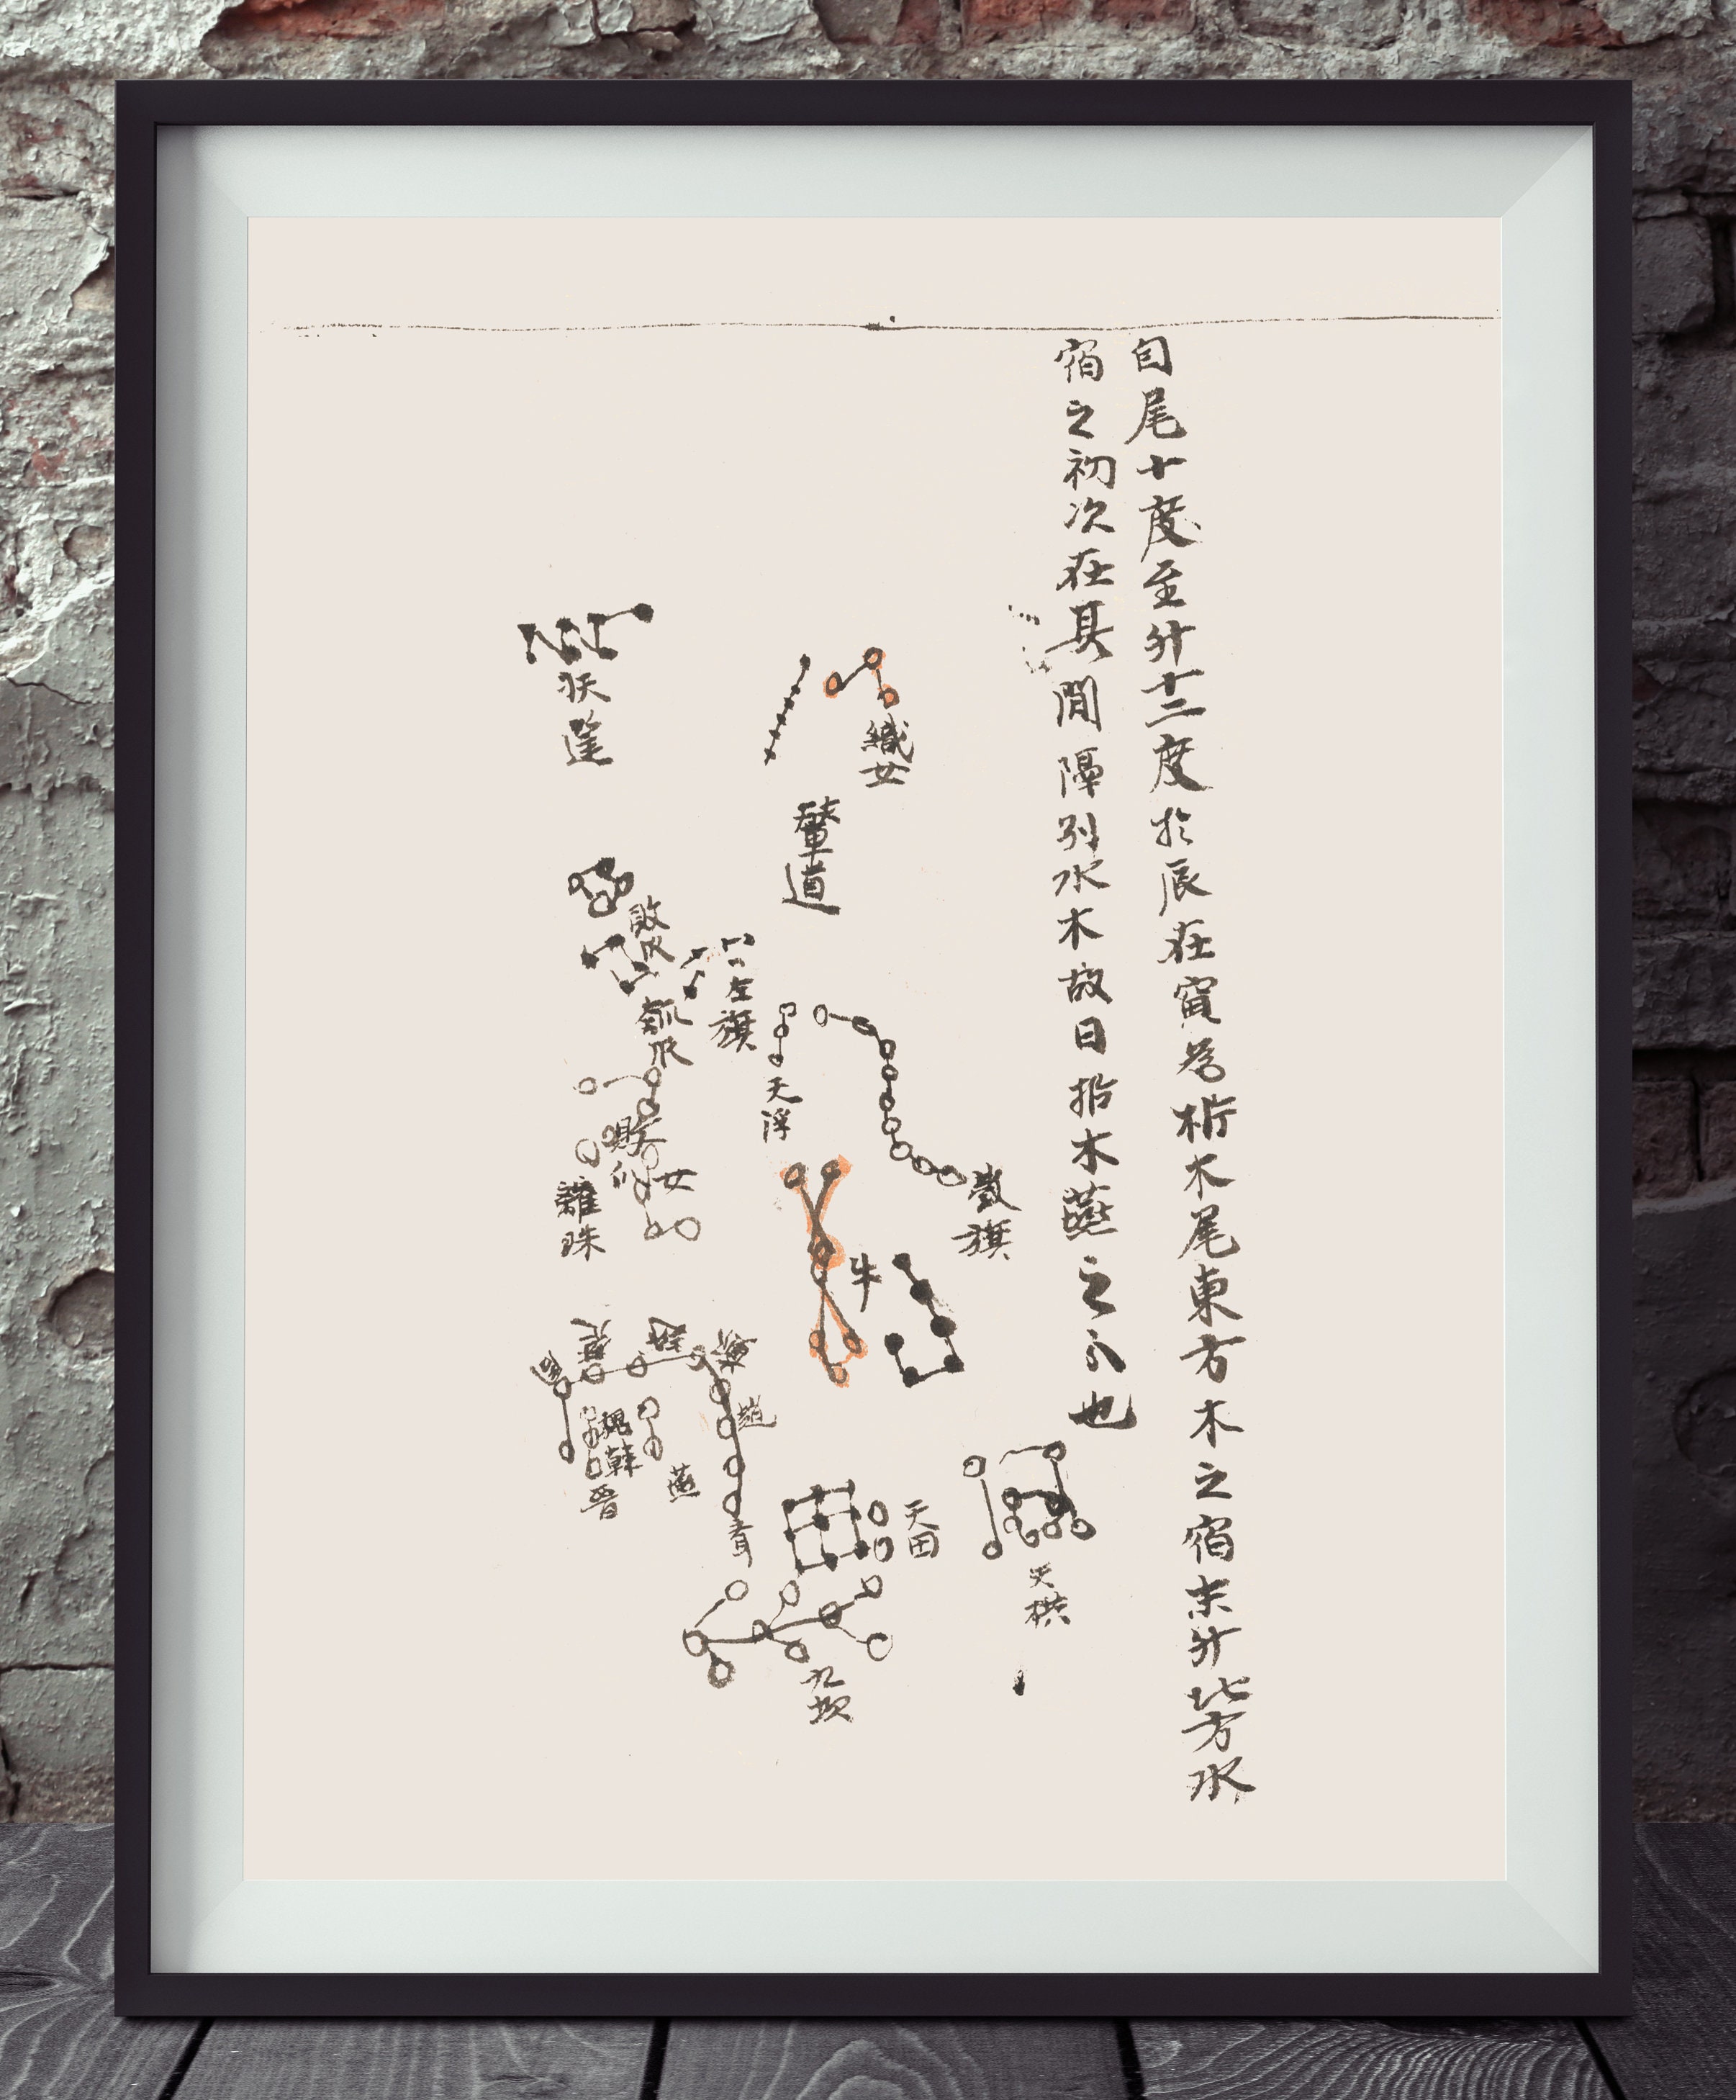 自尾十度至斗十二度於辰在寅為析木尾東方木之宿末斗北方水
宿之初次在其間隔別水木故曰析木燕之分也
織女
輦道
扶筐
敗瓜
瓠瓜
左旗
天浮
女
離珠
牛
旗
趙
魏
韓
晋
燕
天田
九坎
天